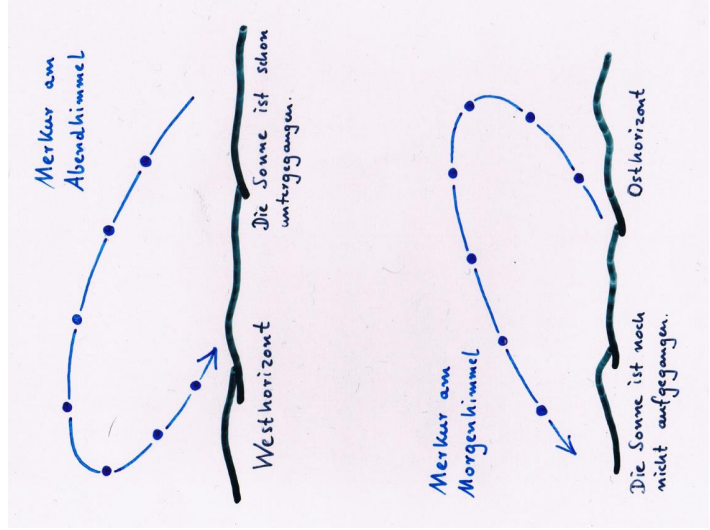 Merkur am
Abendhimmel
Westhorizont
Die Sonne ist schon
untergegangen.
Merkur am
Morgenhimmel
Osthorizont
Die Sonne ist noch
nicht aufgegangen.